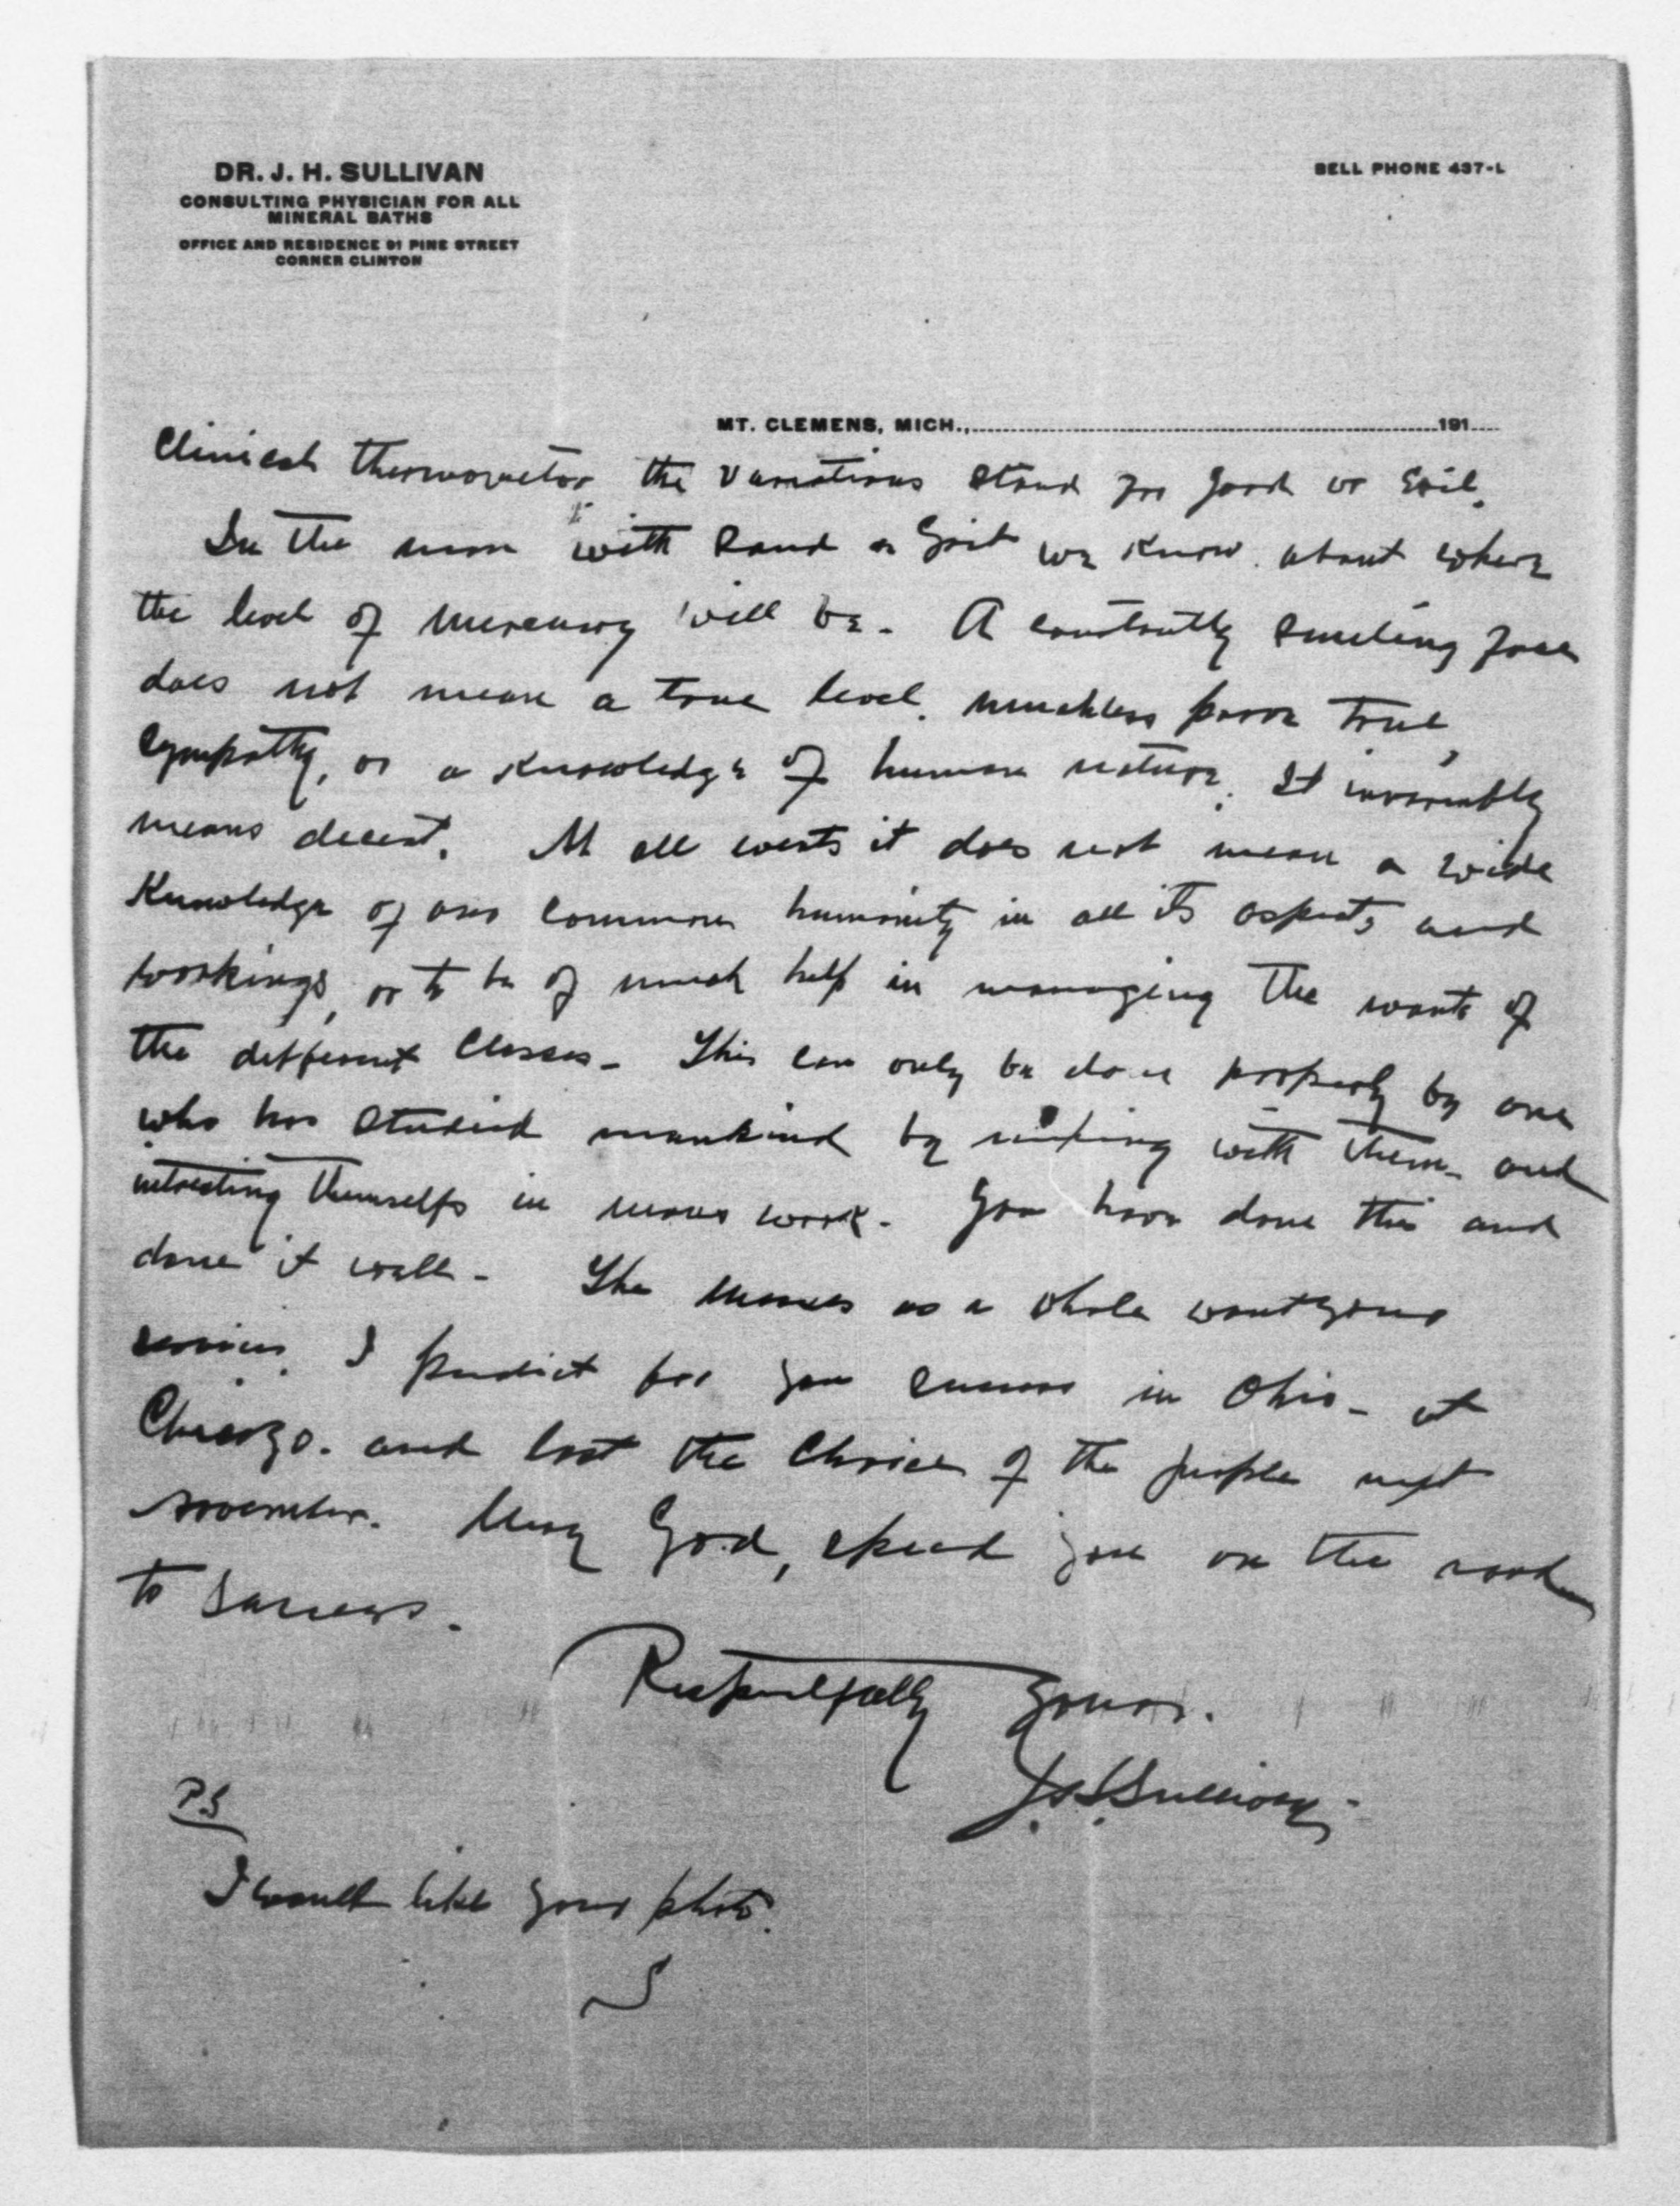 DR. J. H. SULLIVAN
CONSULTING PHYSICIAN FOR ALL
MINERAL BATHS
OFFICE AND RESIDENCE 91 PINE STREET
CORNER CLINTON
BELL PHONE 437-L
MT. CLEMENS, MICH., 191
Clinical thermometer the variations stand for good or Evil.
In the man with Sand or Grit we know about where
the level of mercury will be. A constantly smiling face
does not mean a true level, muchless prove true
sympathy, or a knowledge of human nature. It invariably
means deceit. At all events it does not mean a wide
Knowledge of our common humanity in all its aspects and
workings, or to be of much help in managing the wants of
the different Classes - This can only be done properly by one
who has studied mankind by mixing with them and
intresting themselfs in mans work - You have done this and
done it well - The masses as a whole want your
services. I predict for you success in Ohio - at
Chicago. and last the Choice of the people next
November. May God, speed you on the road
to Success.
Respectfully Yours.
J. H. Sullivan -
P.S
I would like your photo.
S